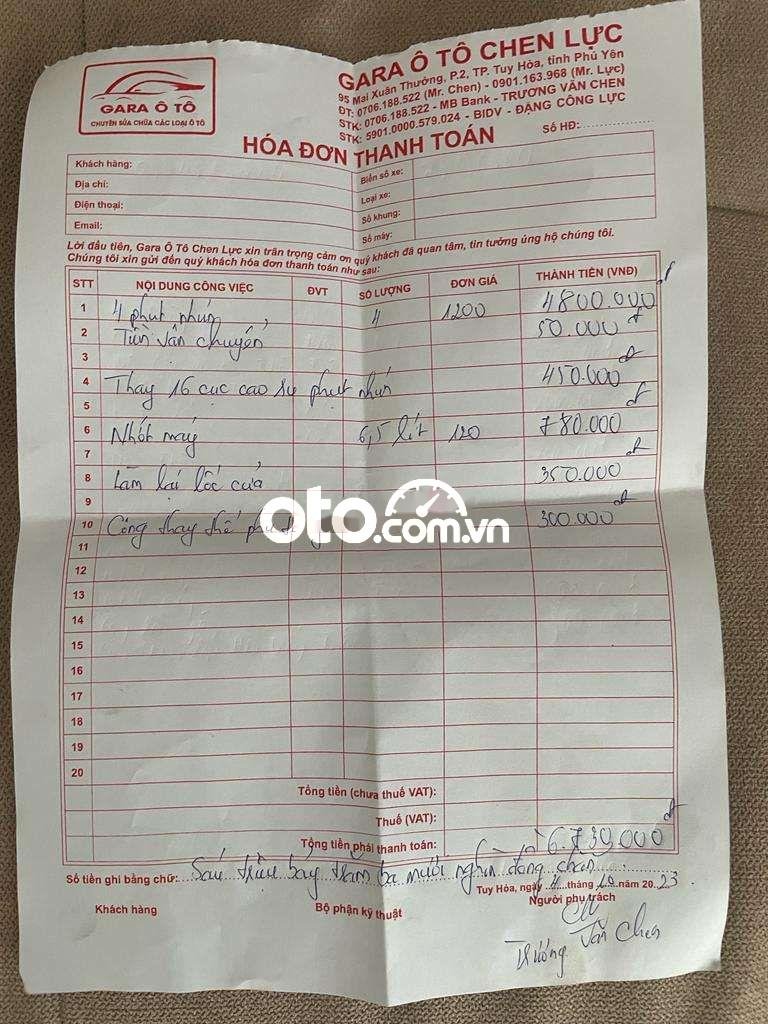 GARA Ô TÔ
CHUYÊN SỬA CHỮA CÁC LOẠI Ô TÔ
GARA Ô TÔ CHEN LỰC
95 Mai Xuân Thưởng, P.2, TP. Tuy Hòa, tỉnh Phú Yên
ĐT: 0706.188.522 (Mr. Chen) - 0901.163.968 (Mr. Lực)
STK: 0706.188.522 - MB Bank - TRƯƠNG VĂN CHEN
STK: 5901.0000.579.024 - BIDV - ĐẶNG CÔNG LỰC
HÓA ĐƠN THANH TOÁN
Số HĐ:
Khách hàng:
Địa chỉ:
Điện thoại:
Email:
Biển số xe:
Loại xe:
Số khung:
Số máy:
Lời đầu tiên, Gara Ô Tô Chen Lực xin trân trọng cảm ơn quý khách đã quan tâm, tin tưởng ủng hộ chúng tôi.
Chúng tôi xin gửi đến quý khách hóa đơn thanh toán như sau:
STT NỘI DUNG CÔNG VIỆC ĐVT SỐ LƯỢNG ĐƠN GIÁ THÀNH TIỀN (VNĐ)
1 4 phụt nhún 4 1200 4800.000đ
2 Tiền vân chuyển 50.000đ
3
4 Thay 16 cục cao su phụt nhún 450.000đ
5
6 Nhớt máy 6,5 lít 120 780.000đ
7
8 Làm lại lốc cửa 350.000đ
9
10 Công thay thế phụ 300.000đ
oto.com.vn
11
12
13
14
15
16
17
18
19
20
Tổng tiền (chưa thuế VAT):
Thuế (VAT):
Tổng tiền phải thanh toán: 6.730,000đ
Số tiền ghi bằng chữ: Sáu triệu bảy trăm ba mươi nghìn đồng chẵn
Tuy Hòa, ngày 4 tháng 10 năm 2023
Khách hàng
Bộ phận kỹ thuật
Người phụ trách
Trương Văn Chen